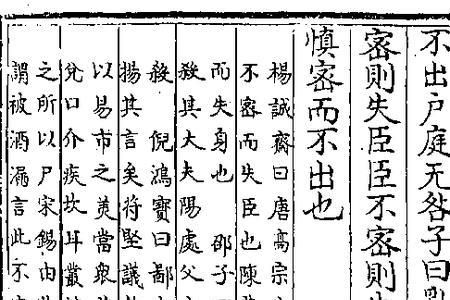 不出户庭无咎子曰亂
密則失臣臣不密則
慎密而不出也
楊誠齋曰唐高宗
不密而失臣也陳
而失身也　邵子
殺其大夫陽處父
殺　倪鴻寶曰鄙
揚其言矣將堅議
以易市之美當衆
兌口介疾坎耳叢
之所以尸宋錫由
謂被酒漏言此不